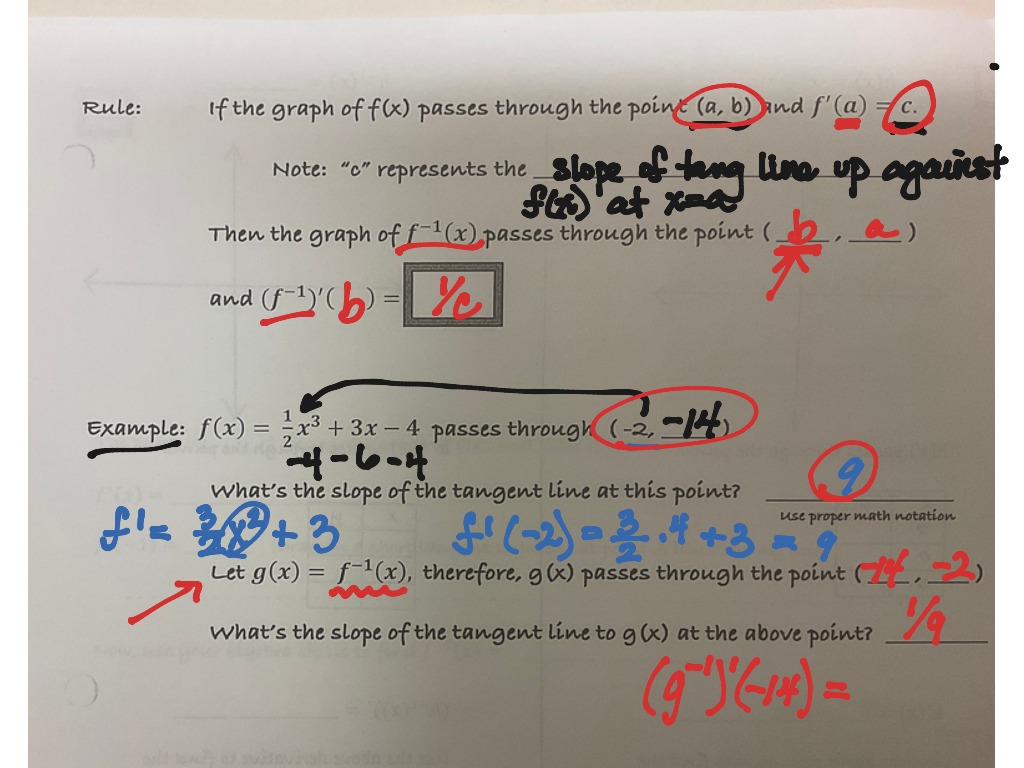 Rule: If the graph of f(x) passes through the point (a, b) and f'(a) = c.
Note: "c" represents the slope of tang line up against
f(x) at x=a
Then the graph of f⁻¹(x) passes through the point ( b , a )
and (f⁻¹)'( b ) = 1/c
Example: f(x) = ½x³ + 3x − 4 passes through (-2, -14)
-4 - 6 - 4
What's the slope of the tangent line at this point? 9
Use proper math notation
f' = 3/2 x² + 3 f'(-2) = 3/2 · 4 + 3 = 9
Let g(x) = f⁻¹(x), therefore, g(x) passes through the point (-14, -2)
What's the slope of the tangent line to g(x) at the above point? 1/9
(g⁻¹)'(-14) =